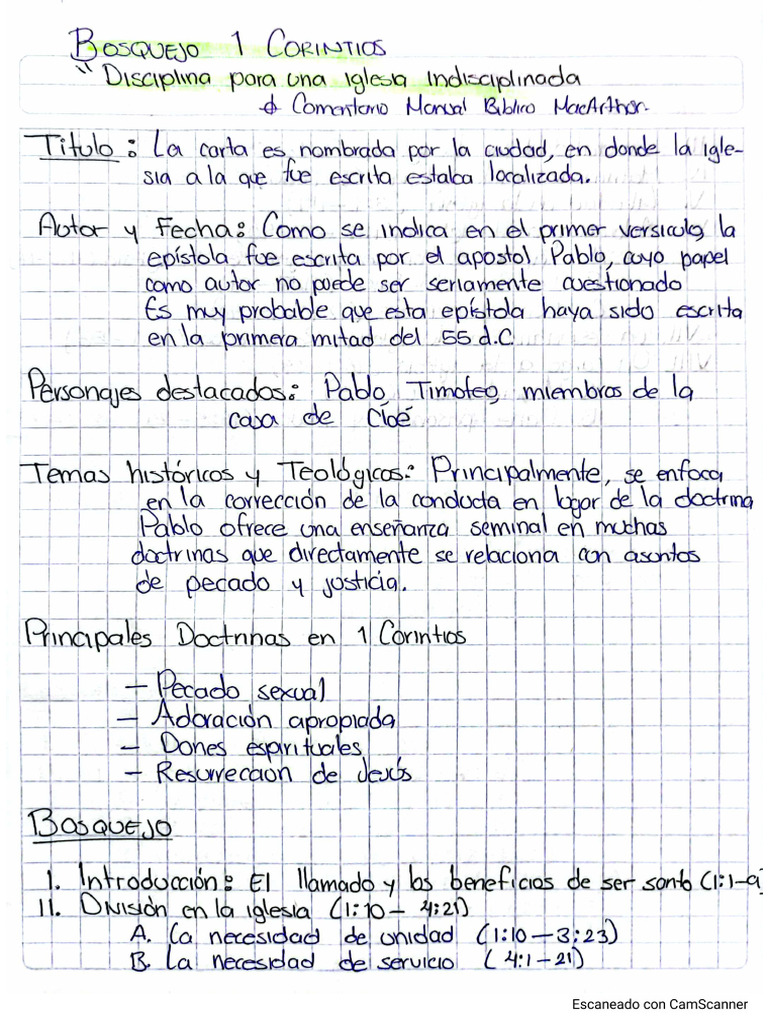 BOSQUEJO 1 CORINTIOS
" DISCIPLINA para una iglesia Indisciplinada
Comentario Manual Biblico MacArthor.
Titulo: La carta es nombrada por la ciudad, en donde la igle-
sia a la que fue escrita estaba localizada.
Autor y Fecha: Como se indica en el primer versiculo, la
epístola fue escrita por el apostol Pablo, cuyo papel
como autor no puede ser seriamente cuestionado
Es muy probable que esta epístola haya sido escrita
en la primera mitad del 55 d.C
Personajes destacados: Pablo, Timoteo, miembros de la
casa de Cloé
Temas históricos y Teológicos: Principalmente, se enfoca
en la corrección de la conducta en lugar de la doctrina
Pablo ofrece una enseñanza seminal en muchas
doctrinas que directamente se relaciona con asuntos
de pecado y justicia.
Principales Doctrinas en 1 Corintios
- Pecado sexual
- Adoración apropiada
- Dones espirituales
- Resurreccion de Jesús
BOSQUEJO
I. Introducción: El llamado y los beneficios de ser santo (1:1-9)
II. División en la iglesia (1:10 - 4:21)
A. La necesidad de unidad (1:10 - 3:23)
B. La necesidad de servicio (4:1 - 21)
Escaneado con CamScanner